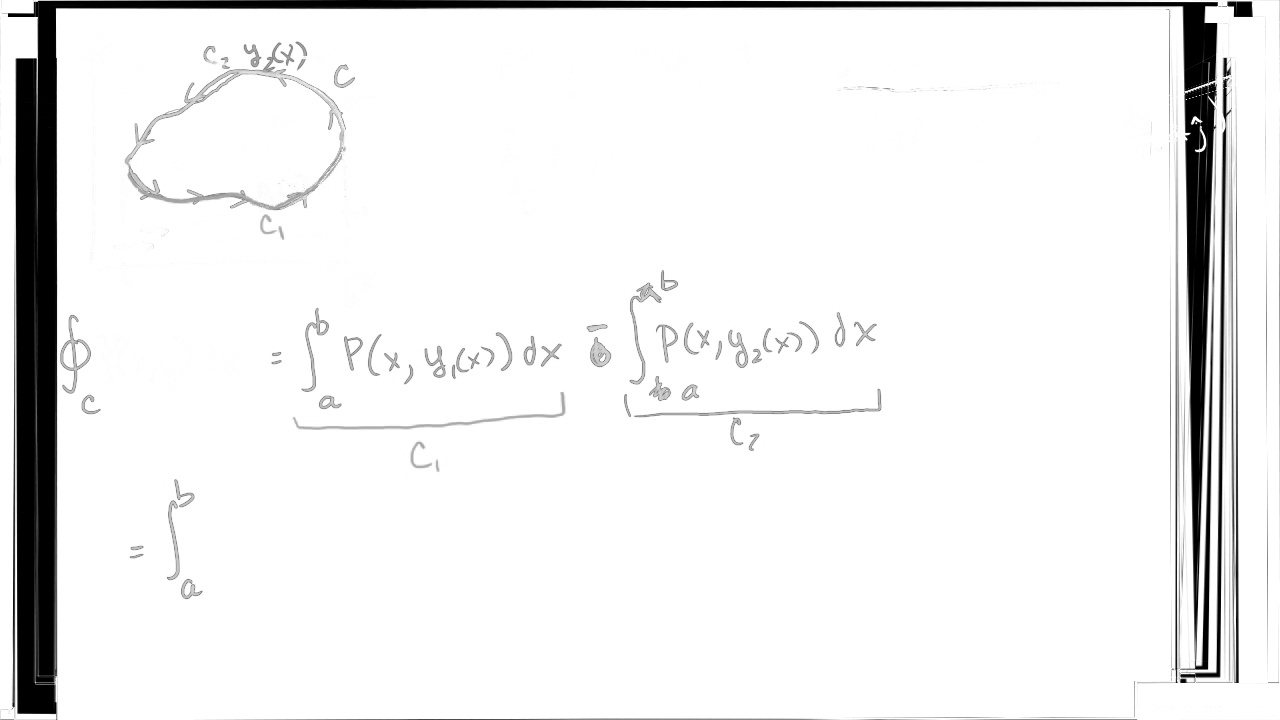 C₂ y₂(x) C
C₁
∮_C = ∫_a^b P(x, y₁(x)) dx - ∫_a^b P(x, y₂(x)) dx
C₁ C₂
= ∫_a^b
ĵ